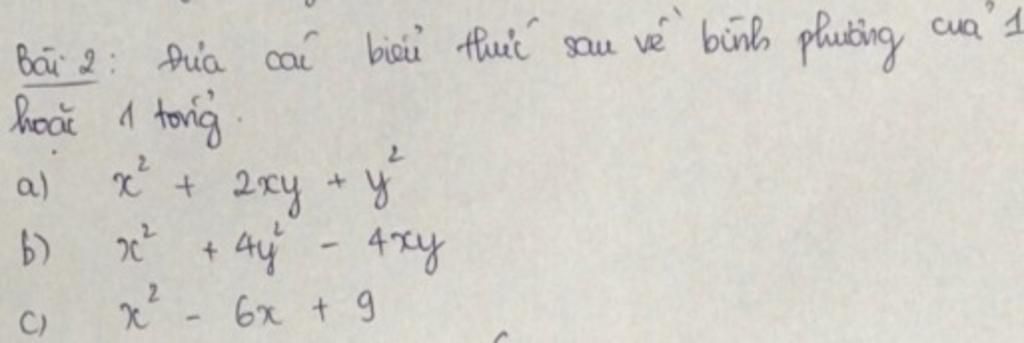 Bài 2: Đưa các biểu thức sau về bình phương của 1
hoặc 1 tổng.
a) x² + 2xy + y²
b) x² + 4y² - 4xy
c) x² - 6x + 9